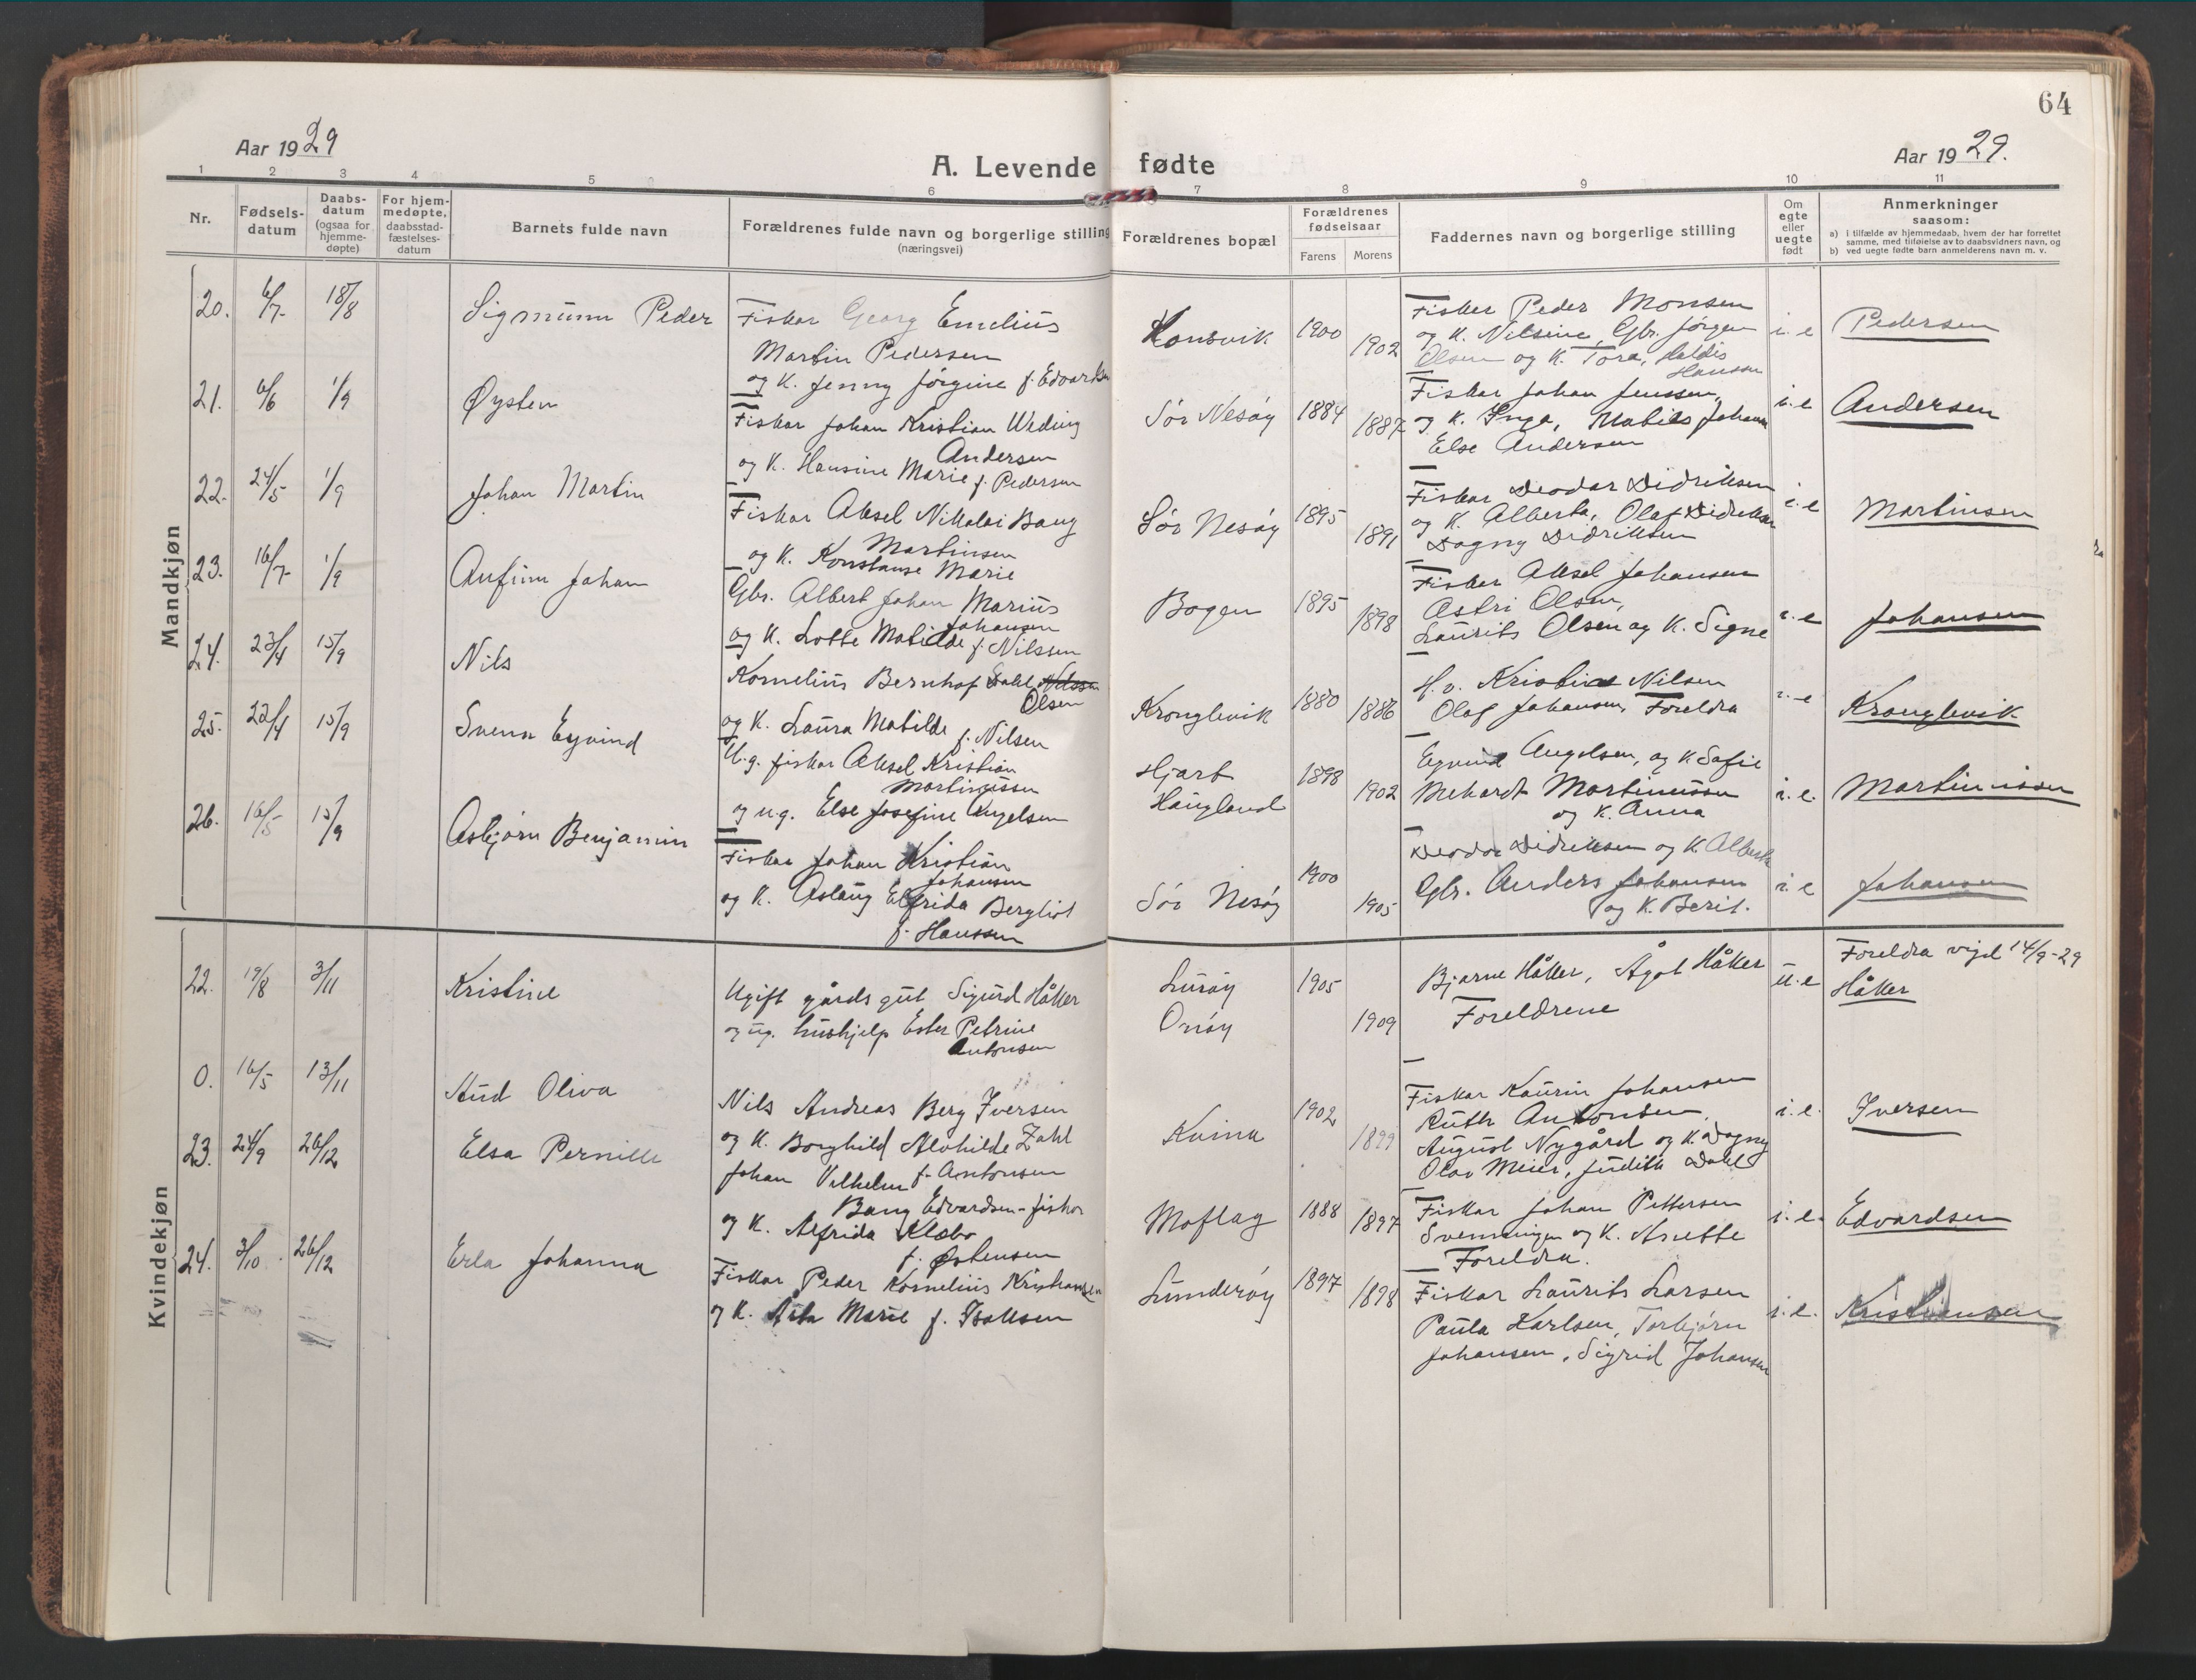 64
Aar 1929
A. Levende fødte
Aar 1929.
1 2 3 4 5 6 7 8 9 10 11
Nr.
Fødsels-
datum
Daabs-
datum
(ogsaa for
hjemme-
døpte)
For hjem-
medøpte,
daabsstad-
fæstelses-
datum
Barnets fulde navn
Forældrenes fulde navn og borgerlige stilling
(næringsvei)
Forældrenes bopæl
Forældrenes
fødselsaar
Farens Morens
Faddernes navn og borgerlige stilling
Om
egte
eller
uegte
født
Anmerkninger
saasom:
a) i tilfælde av hjemmedaab, hvem der har forrettet
samme, med tilføielse av to daabsvidners navn, og
b) ved uegte fødte barn anmelderens navn m. v.
Mandkjøn
20. 6/7 18/8 Sigmunn Peder
Fiskar Georg Emelius
Martin Pedersen
og K. Jenny Jørgine f. Edvardsen
Konsvik 1900 1902
Fisker Peder Monsen
og K. Nilsine, Gbr. Jørgen
Olsen og K. Tora, Haldis
Hanssen
i. e Pedersen
21. 6/6 1/9 Øysten
Fiskar Johan Kristian Weding
Andersen
og K. Hansine Marie f. Pedersen
Sør Nesøy 1884 1887
Fiskar Johan Jenssen,
og K. Inga,
Else Andersen
i. e Andersen
22. 24/5 1/9 Johan Martin
Fiskar Aksel Nikolai Bang
Martinsen
og K. Konstanse Marie
Sør Nesøy 1895 1891
Fiskar Deodor Didriksen
og K. Alberta, Olaf Didriksen
Dagny Didriksen
i. e Martinsen
23. 16/7 1/9 Anfinn Johan
Gbr. Albert Johan Marius
Johansen
og K. Lotte Matilde f. Nilssen
Bogen 1895 1898
Fisker Aksel Johansen
Astri Olsen,
Laurits Olsen og K. Signe
i. e Johansen
24. 23/4 15/9 Nils
Kornelius Bernhof Dahl Nilssen
Olsen
og K. Laura Matilde f. Nilsen
Kronglevik 1880 1886
Nilsen
Olaf Johansen, Foreldra
i. e Kronglevik
25. 22/4 15/9 Svenn Eyvind
U.g. fiskar Aksel Kristian
Martinussen
og u.g. Else Josefine Angelsen
Hjart
Haugland 1898 1902
Eyvind Angelsen, og K. Safie
Mehardt Martinussen
og K. Anna
i. e. Martinussen
26. 16/5 15/9 Asbjørn Benjamin
Fiskar Johan Kristian
Johansen
og K. Aslaug Elfrida Bergliot
f. Hanssen
Sør Nesøy 1900 1905
Deodor Didriksen og K. Alberta
Gbr. Anders Johansen
og K. Berit.
i. e Johansen
Kvindekjøn
22. 19/8 3/11 Kristine
Ugift gårdsgut Sigurd Håker
og ug. hushjelp Ester Petrine
Antonsen
Lurøy
Onøy 1905 1909
Bjarne Håker, Ågot Håker
Foreldrene
u. e
Foreldra vigd 14/9-29
Håker
0. 16/5 13/11 Aud Oliva
Nils Andreas Berg Iversen
og K. Borghild Alvhilde Zahl
f. Antonsen
Kvina 1902 1899
Fiskar Kaurin Johansen
Ruth Antonsen,
August Nygård og K. Dagny
Olav Meier, Judith Dahl
i. e. Iversen
23. 24/9 26/12 Elsa Pernille
Johan Vilhelm
Bang Edvardsen - fiskar
og K. Alfrida Klæbo
f. Østensen
Moflag 1888 1897
Fiskar Johan Pettersen
Svenningen og K. Anette
Foreldra.
i. e. Edvardsen
24. 3/10 26/12 Erla Johanna
Fiskar Peder Kornelius Kristiansen
og K. Asta Marie f. Isaksen
Lunderøy 1897 1898
Fiskar Laurits Larsen
Paula Karlsen, Torbjørn
Johansen, Sigrid Johansen
i. e. Kristiansen